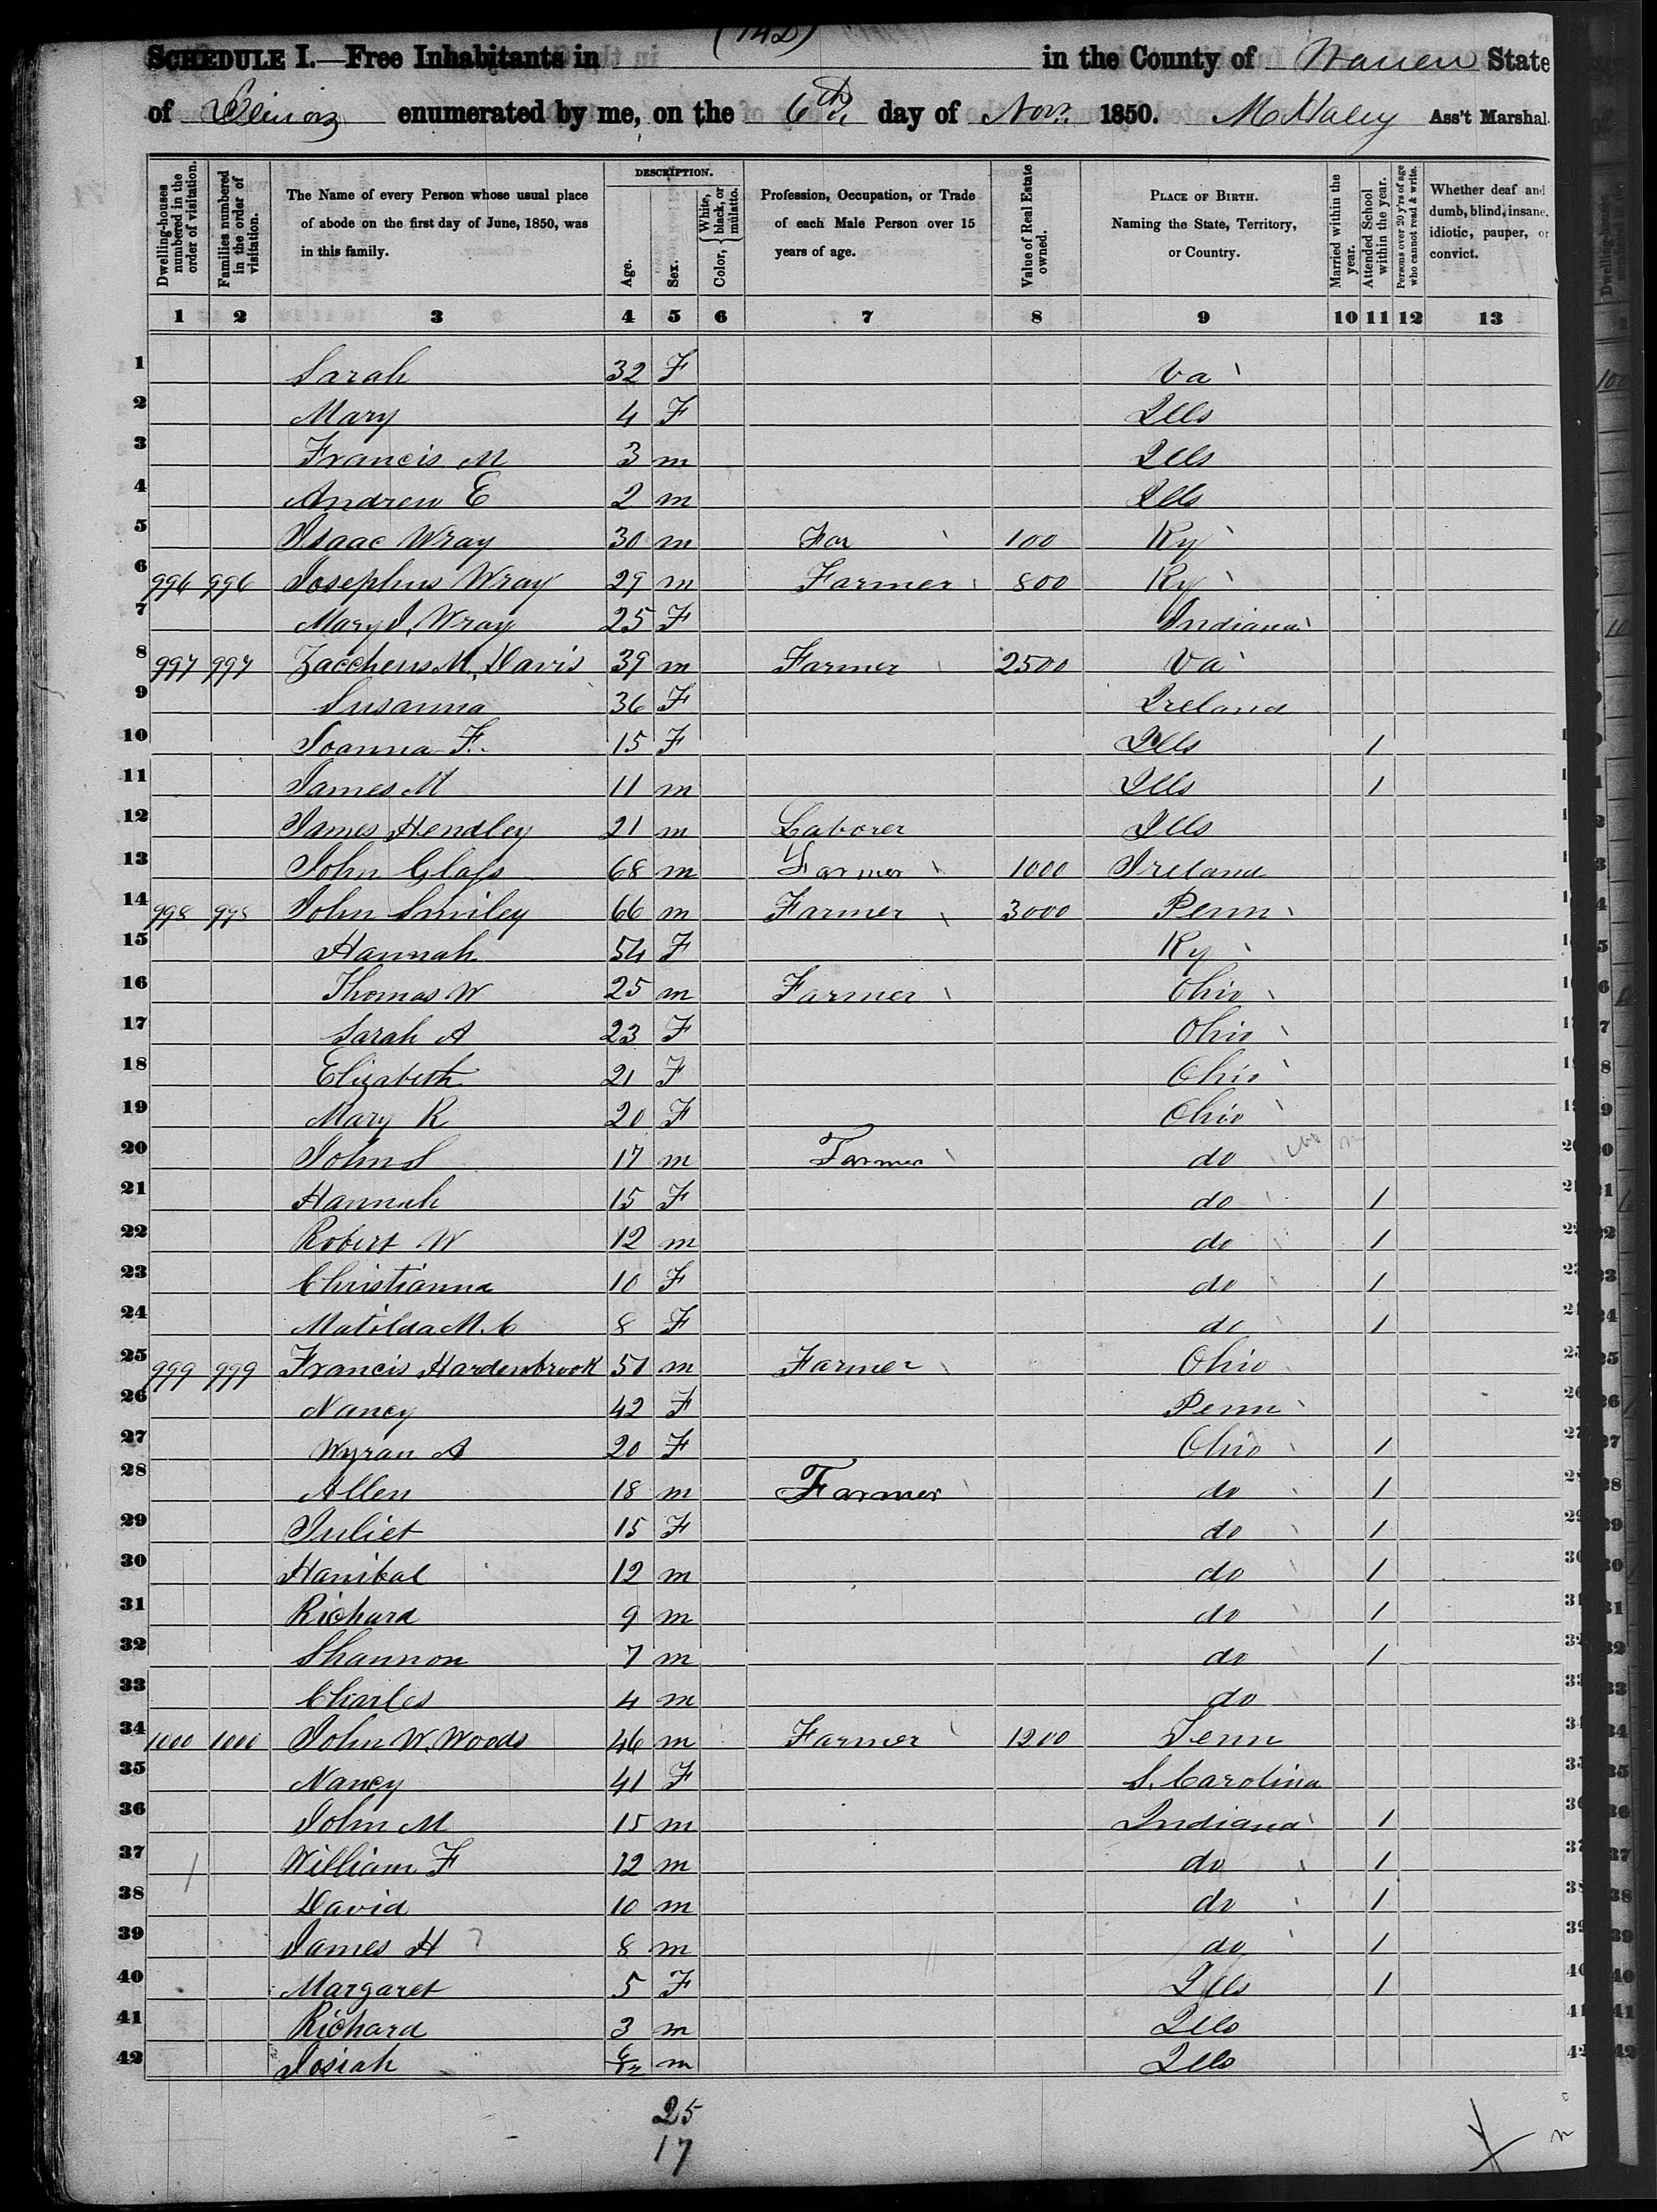 (142)
SCHEDULE I.—Free Inhabitants in in the County of Warren State
of Illinois enumerated by me, on the 6th day of Nov. 1850. M Haley Ass't Marshal.
Dwelling-houses numbered in the order of visitation.
Families numbered in the order of visitation.
The Name of every Person whose usual place of abode on the first day of June, 1850, was in this family.
DESCRIPTION.
Age.
Sex.
Color, { White, black, or mulatto.
Profession, Occupation, or Trade of each Male Person over 15 years of age.
Value of Real Estate owned.
PLACE OF BIRTH. Naming the State, Territory, or Country.
Married within the year.
Attended School within the year.
Persons over 20 y'rs of age who cannot read & write.
Whether deaf and dumb, blind, insane, idiotic, pauper, or convict.
1 2 3 4 5 6 7 8 9 10 11 12 13
1 Sarah 32 F Va
2 Mary 4 F Ills
3 Francis M 3 m Ills
4 Andrew E 2 m Ills
5 Isaac Wray 30 m Far 100 Ky
6 996 996 Josephus Wray 29 m Farmer 800 Ky
7 Mary J. Wray 25 F Indiana
8 997 997 Zaccheus M. Davis 39 m Farmer 2500 Va
9 Susanna 36 F Ireland
10 Joanna F. 15 F Ills 1
11 James M 11 m Ills 1
12 James Hendley 21 m Laborer Ills
13 John Glass 68 m Farmer 1000 Ireland
14 998 998 John Smiley 66 m Farmer 3000 Penn
15 Hannah 54 F Ky
16 Thomas W 25 m Farmer Ohio
17 Sarah A 23 F Ohio
18 Elizabeth 21 F Ohio
19 Mary R 20 F Ohio
20 John S 17 m Farmer do
21 Hannah 15 F do 1
22 Robert W 12 m do 1
23 Christianna 10 F do 1
24 Matilda M. C 8 F do 1
25 999 999 Francis Hardenbrook 51 m Farmer Ohio
26 Nancy 42 F Penn
27 Wyran A 20 F Ohio 1
28 Allen 18 m Farmer do 1
29 Juliet 15 F do 1
30 Hanibal 12 m do 1
31 Richard 9 m do 1
32 Shannon 7 m do 1
33 Charles 4 m do
34 1000 1000 John W. Woods 46 m Farmer 1200 Tenn
35 Nancy 41 F S. Carolina
36 John M 15 m Indiana 1
37 William F 12 m do 1
38 David 10 m do 1
39 James H 8 m do 1
40 Margaret 5 F Ills 1
41 Richard 3 m Ills
42 Josiah m Ills
25
17